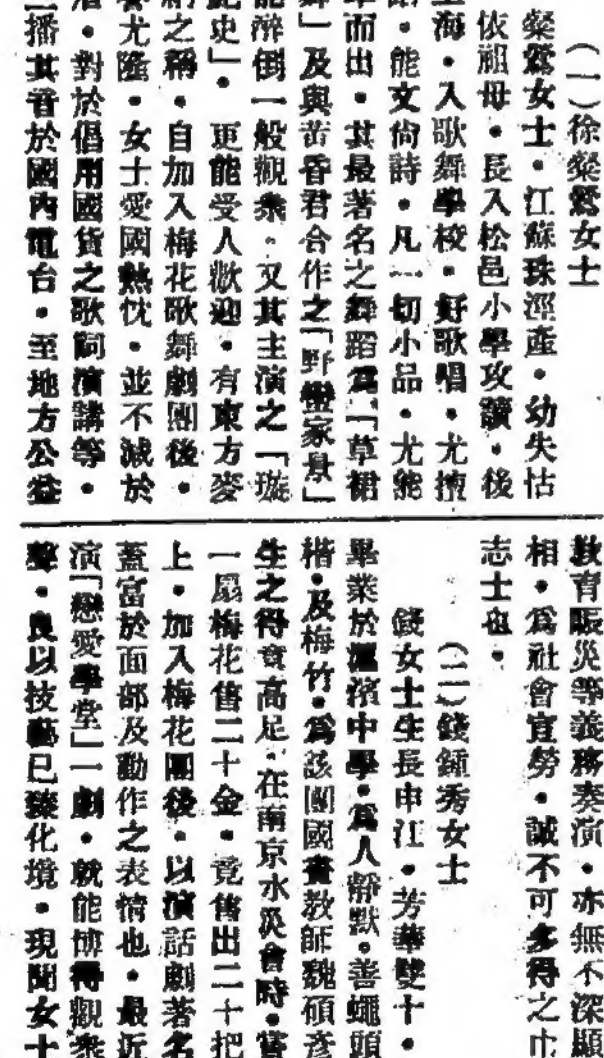 （一）徐粲鶯女士
粲鶯女士．江蘇珠涇產．幼失怙
依祖母．長入松邑小學攻讀．後
海．入歌舞學校．好歌唱．尤擅
．能文尙詩．凡一切小品．尤能
而出．其最著名之舞蹈爲「草裙
」及與黃昏君合作之「野蠻家景」
能醉倒一般觀衆．又其主演之「璇
史」．更能受人歡迎．有東方麥
之稱．自加入梅花歌舞劇團後．
尤隆．女士愛國熱忱．並不減於
．對於倡用國貨之歌詞演講等．
播其音於國內電台．至地方公益
教育賑災等義務奏演．亦無不深顯
相．爲社會宣勞．誠不可多得之巾
志士也．
（二）錢鍾秀女士
錢女士生長申江．芳華雙十．
畢業於滬濱中學．爲人靜默．善蠅頭
楷．及梅竹．爲該團國畫教師魏碩彥
生之得意高足．在南京水災會時．嘗
一扇梅花售二十金．竟售出二十把
上．加入梅花團後．以演話劇著名
蓋富於面部及動作之表情也．最近
演「戀愛學堂」一劇．就能博得觀衆
聲．良以技藝已臻化境．現聞女士